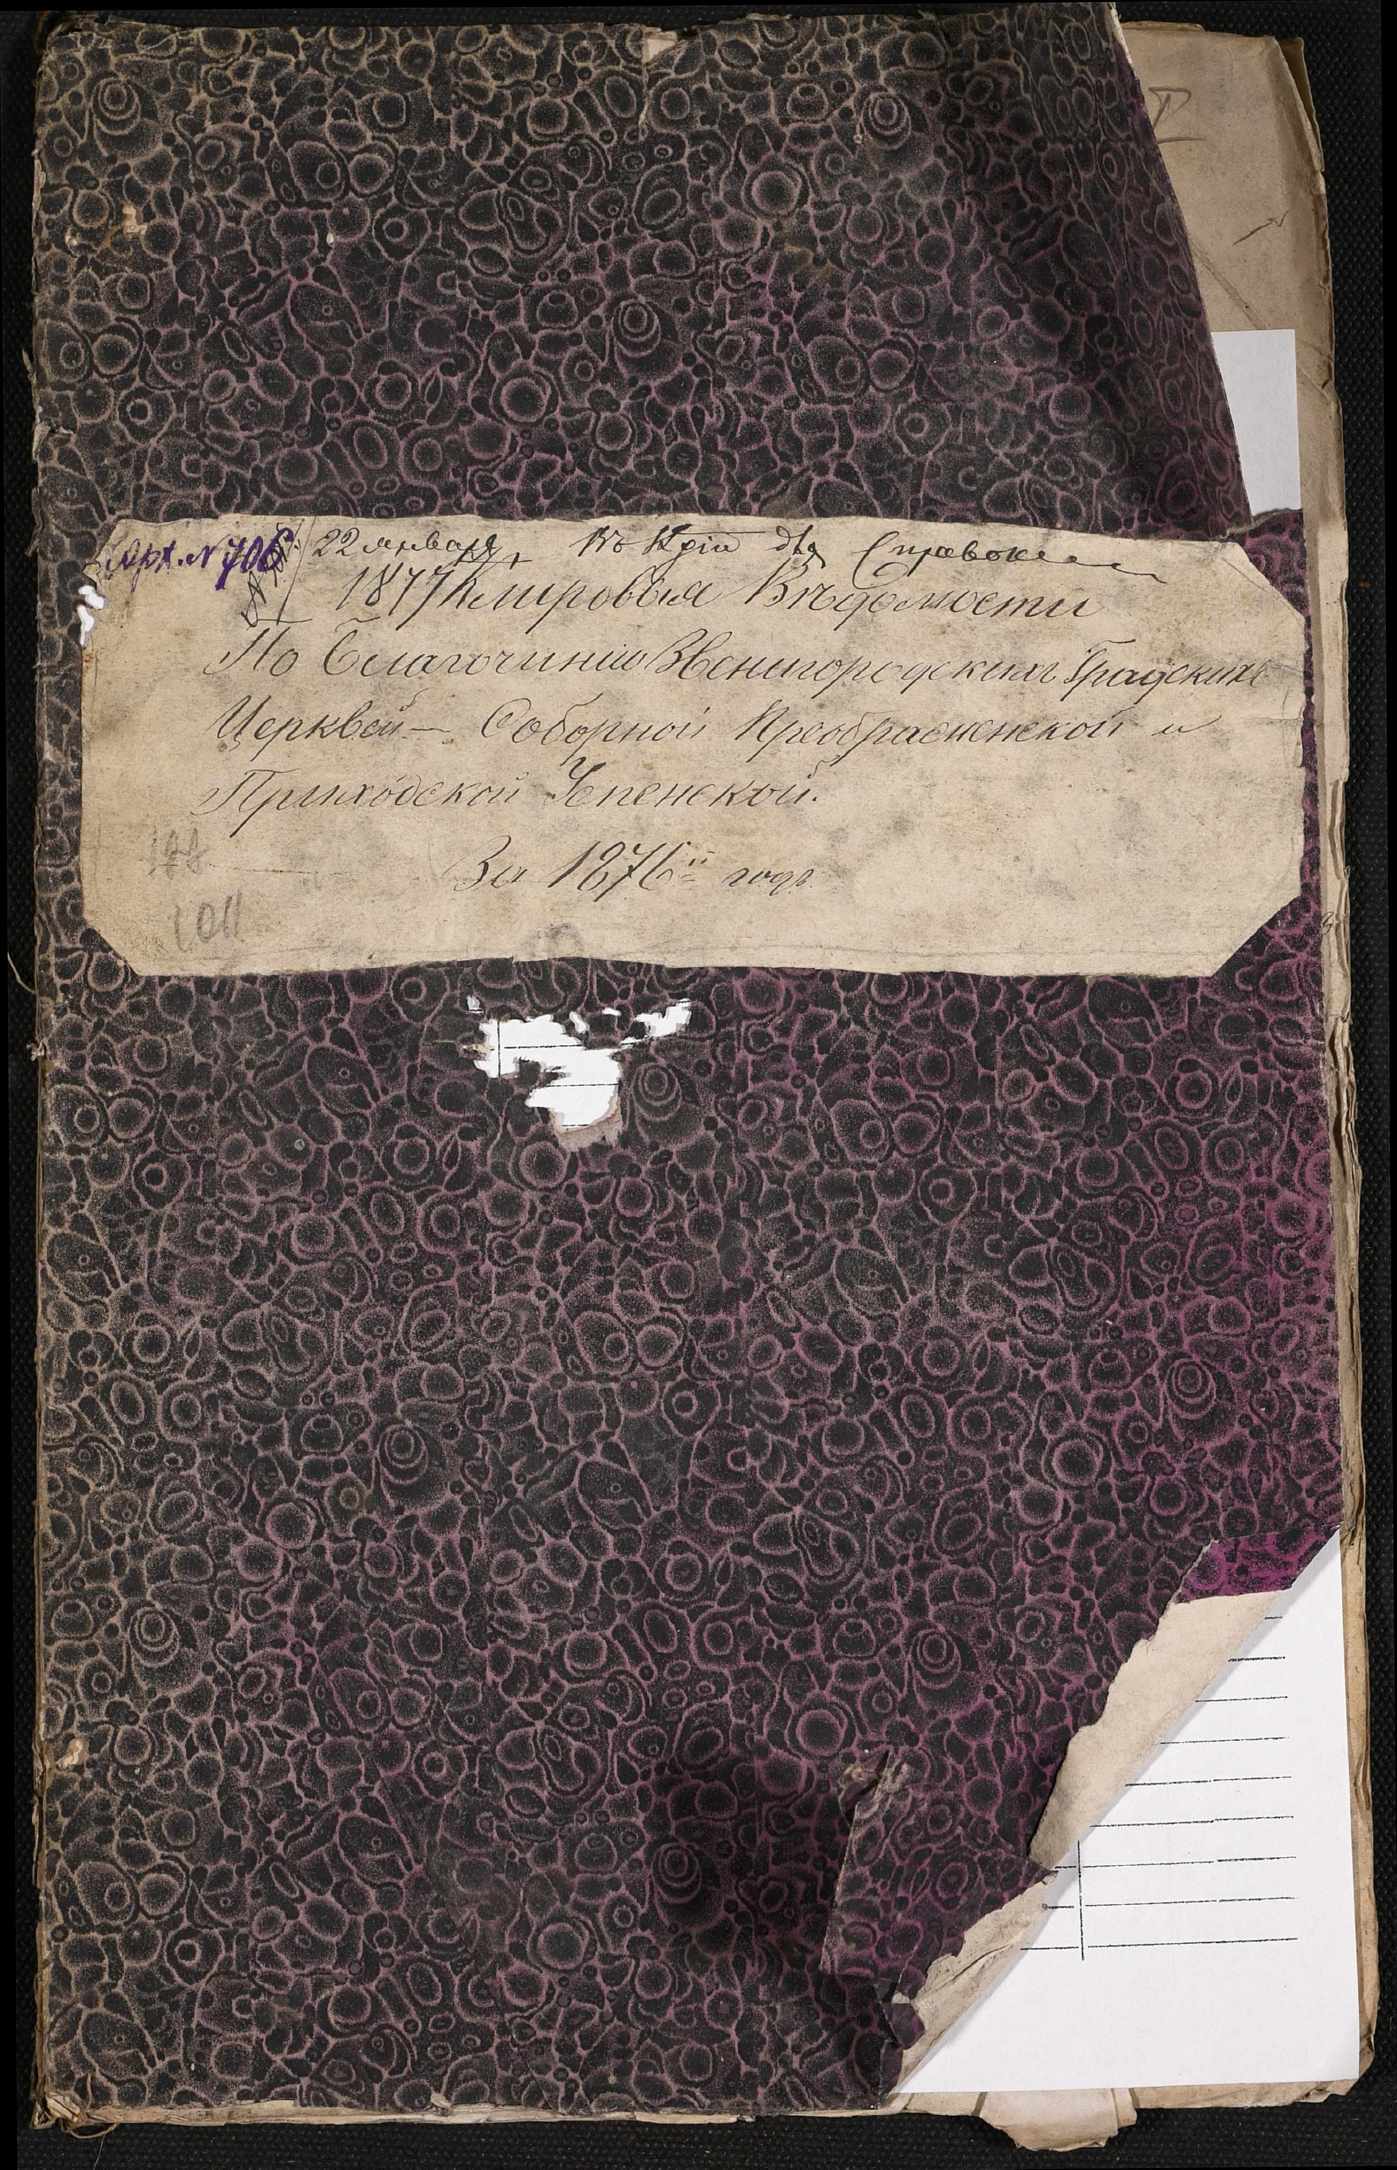 Арх. № 706
22 января, Въ Кріи для Справокъ
1877 Клировыя Вѣдомости
По Благочинію Звенигородскихъ Градскихъ
Церквей — Соборной Преображенской и
Приходской Успенской.
За 1876й годъ.
1011